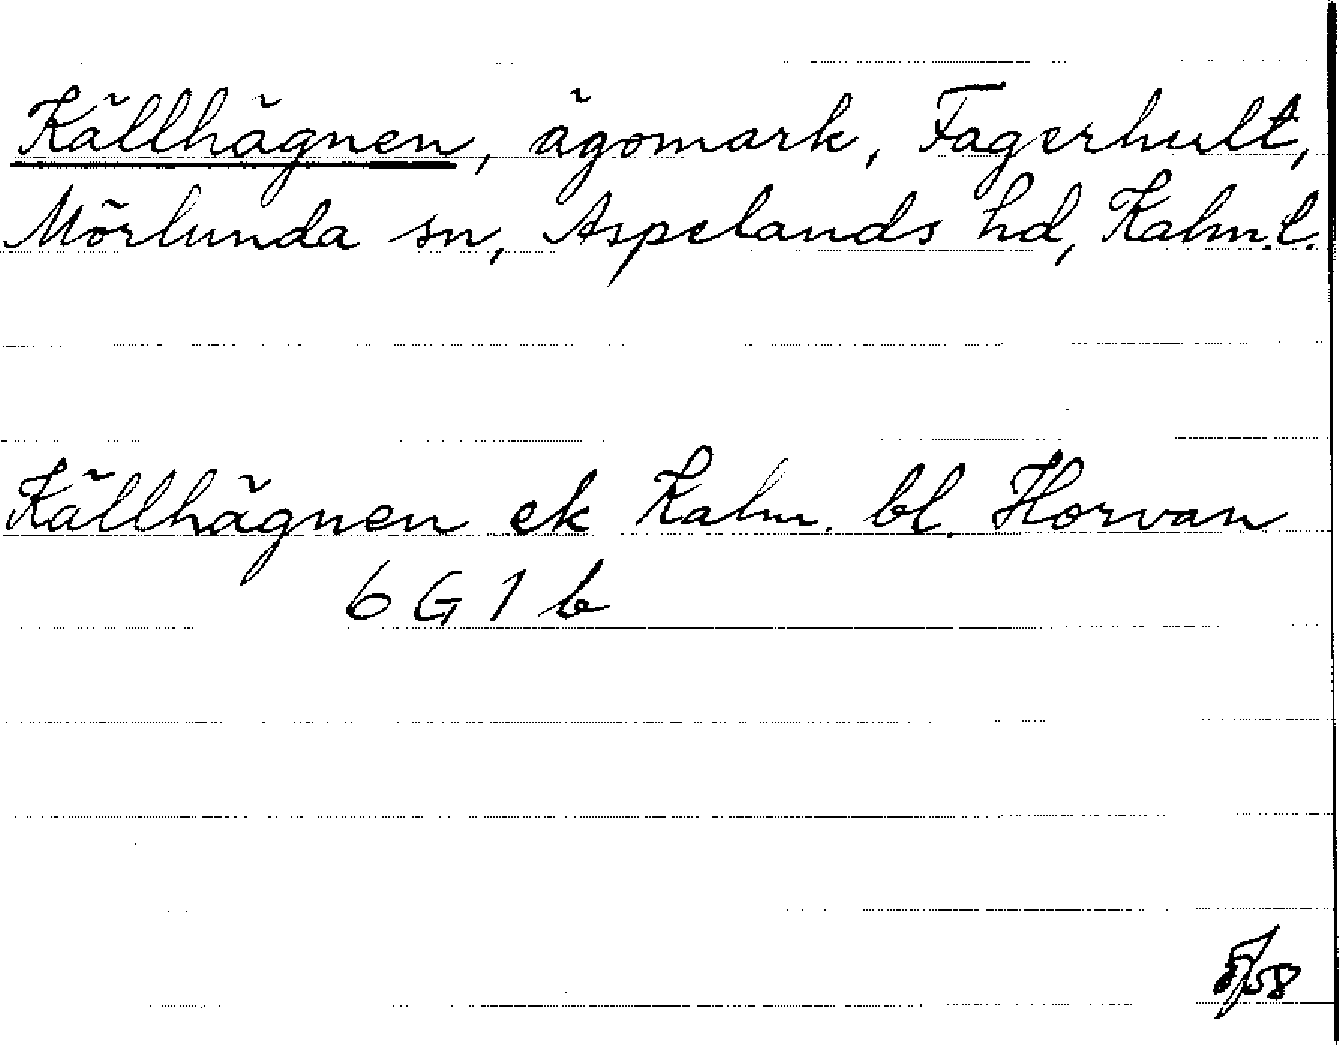 Källhägnen, ägomark, Fagerhult,
Mörlunda sn, Aspelands hd, Kalm.l.
Källhägnen ek Kalm. bl. Horvan
6 G 1 b
5/58